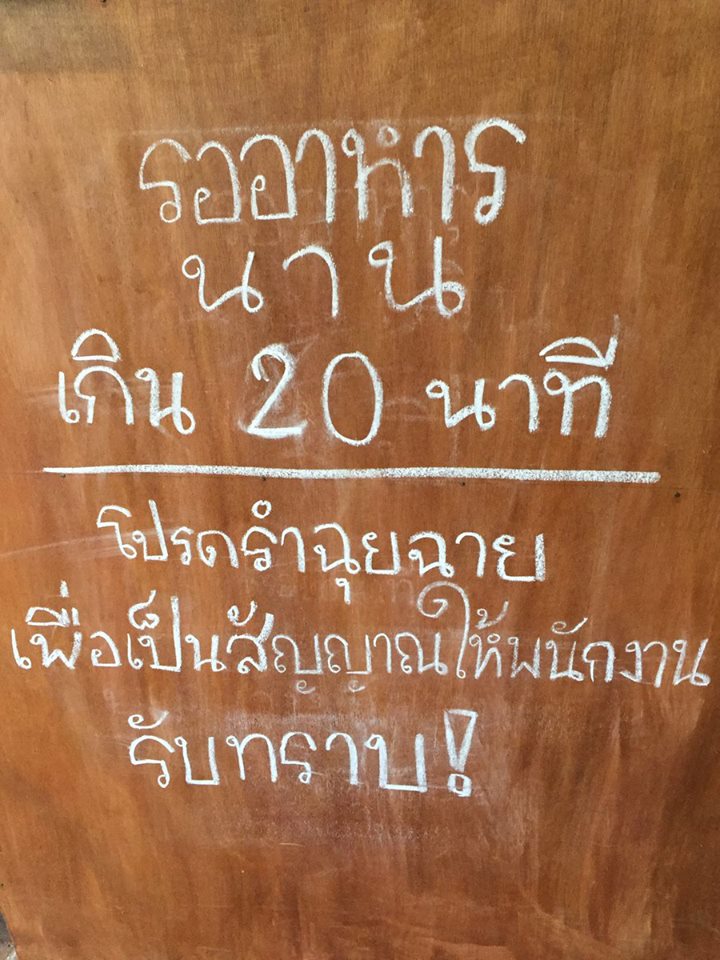 รออาหาร
นาน
เกิน 20 นาที
โปรดรำฉุยฉาย
เพื่อเป็นสัญญาณให้พนักงาน
รับทราบ!